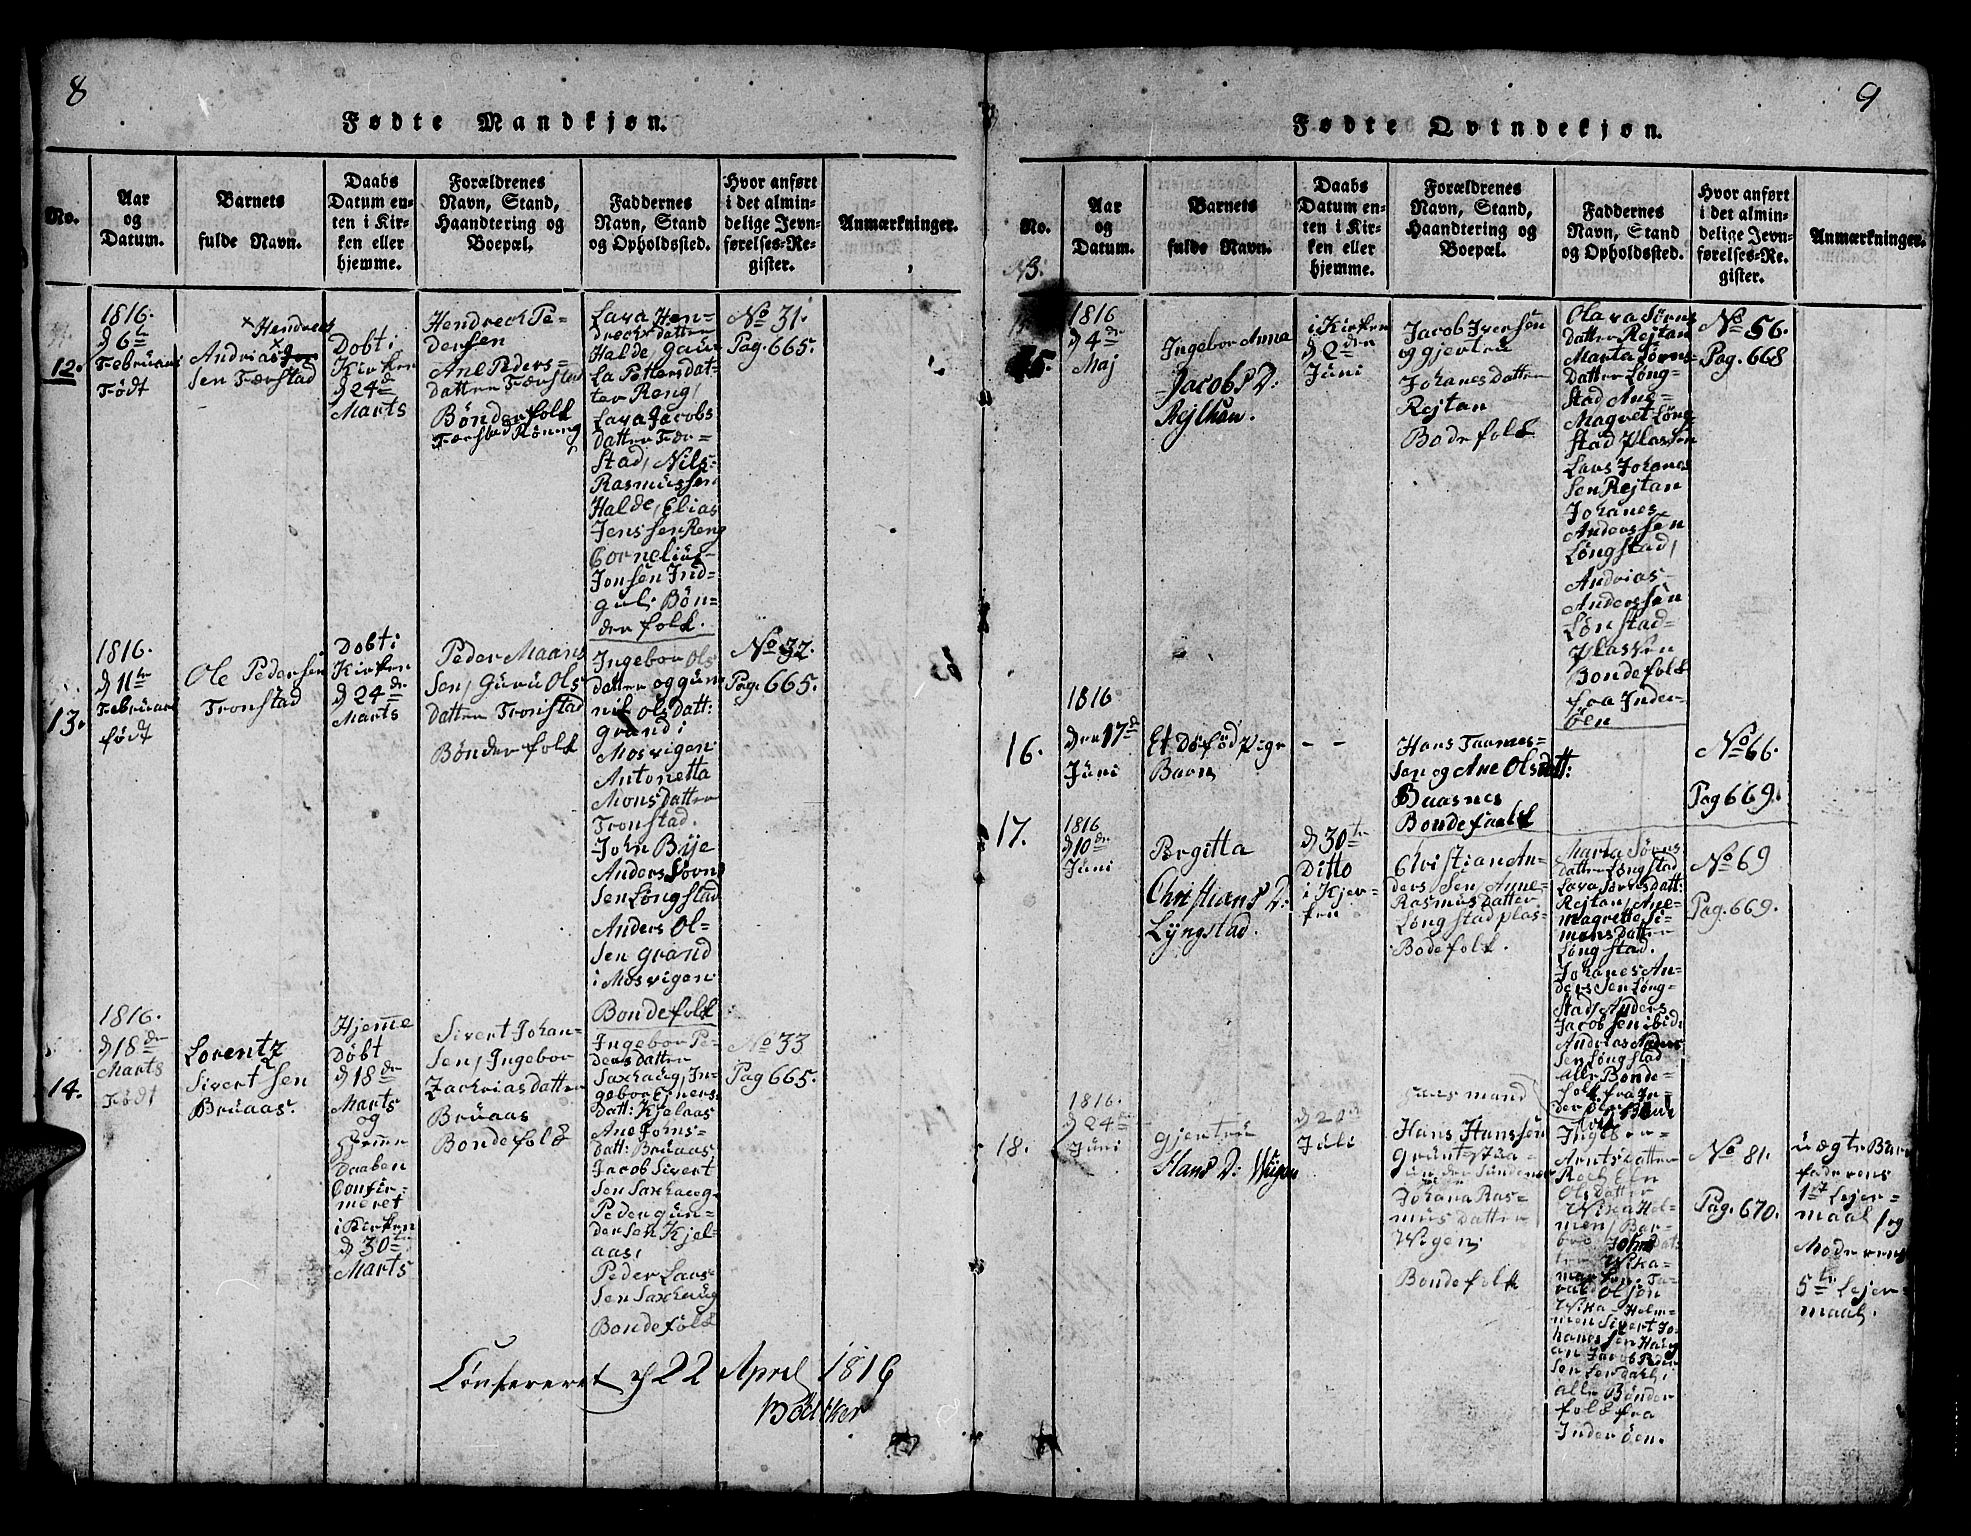 8
Fødte Mandkjøn.
No.
Aar
og
Datum.
Barnets
fulde Navn.
Daabs
Datum en-
ten i Kir-
ken eller
hjemme.
Forældrenes
Navn, Stand,
Haandtering og
Boepæl.
Faddernes
Navn, Stand
og Opholdssted.
Hvor anført
i det almin-
delige Jevn-
førelses-Re-
gister.
Anmærkninger.
12.
1816.
d 6te
Februari
Født
Hendrech
Andrias
Sen Færstad
Døbt i
Kirken
d 24de
Marts
Hendrech Pe-
dersen
Ane Peders-
datter Færstad
Bønder folk
Lava Hen-
drechs datter
Halde, Gaur
La Pettersdat-
ter Reng,
Lava Jacobs
datter Fær-
stad, Nils-
Rasmussen
Halde, Elias
Jenssen Reng
Cornelius-
Jonsen Ind-
gul. Bøn-
der folk.
No 31.
Pag. 665.
13.
1816.
d 11te
Februari
født
Ole Pedersen
Tronstad
Døbt i
Kirken
d 24de
Marts
Peder Maans
Sen, Guru Ols
datter Tronstad
Bønder folk
Ingebor Ols
datter og gun
nil ols datt:
grand i
Mosvigen
Antonetta
Mons datter
Tronstad.
John Bye
Anders Sørns
Sen Løngstad
Anders Ol-
sen grand
i Mosvigen
Bondefolk
No 32.
Pag. 665.
14.
1816.
d 18de
Marts
Født
Lorentz
Sivert Sen
Bruaas.
Hjemme
Døbt
d 18de
Marts
og
Hjemme
Daaben
Confir-
meret
i Kirken
d 30te
Marts
Sivert Johan-
Sen, Ingebor
Zachrias datter
Bruaas
Bondefolk
Ingebor Pe-
ders datter
Saxhaug, In-
gebor Ejners
Datt: Kjelaas
Ane Johns-
datt: Bruaas
Jacob Sivert
Sen Saxhaug
Peder gun-
dersen Kjel-
aas,
Peder Lars-
Sen Saxhaug
Bondefolk
No 33
Pag 665.
Confereret d 22 April 1816
Bødtker
9
Fødte Qvindekjøn.
No.
Aar
og
Datum.
Barnets
fulde Navn.
Daabs
Datum en-
ten i Kir-
ken eller
hjemme.
Forældrenes
Navn, Stand,
Haandtering og
Boepæl.
Faddernes
Navn, Stand
og Opholdssted.
Hvor anført
i det almin-
delige Jevn-
førelses-Re-
gister.
Anmærkninger.
15.
1816
d 4de
Maj
Ingebor Anna
Jacobs D:
i Kirken
d 2den
Juni
Jacob Iversen
og gjertru
Johanes datter
Rejtan
Bode folk
Olava Sørns
datter Rejtan
Marta Sørns-
Datter Løng-
stad Ane-
Magret Løng-
stad Plassen
Lars Johanes
Sen Rejtan
Johanes
Anderssen
Løngstad,
Andrias-
Anderssen
Lønstad-
Plassen
Bondefolk
fra Inder-
øen
No 56.
Pag. 668
16.
1816
den 17de
Juni
Et Døfød Pige
Barn
- -
Hans Taames-
Sen og Ane Olsdatt:
Baasnes
Bondefaalk
No 66.
Pag 669.
17.
1816
d 10de
Juni
Bergitta
Christians D:
Lyngstad.
d 30te
Ditto
i Kjer-
ken
Christian An-
ders Sen, Anne-
Rasmus datter
Løngstad plas-
Bodefolk.
Marta Sørns
datter Løngstad
Lava Sørns datt:
Rejtan, Ane
magrette Si-
mons datter
Løngstad.
Johanes An-
ders Sen Løng-
stad, Anders
Jacobsen ibid:
Andrias Anders
Sen Løngstad
alle Bonde-
folk fra In-
der øen
No 69
Pag. 669.
18.
1816.
d 24de
Juni
gjertru
Hans D: Wigen
Juli
Hans Hanssen
Johana Ras-
mus datter
Wigen;
Bondefolk
Ingebor-
Arntsdatter
Olsdatter
Wika Hol-
men, Bar-
Wika-
Wika-Holm-
men Sivert Jo-
hanessen Haug
an Jacob Peder
alle Bønder
folk fra
Inderøen.
No 81.
Pag. 670.
uægte Barn
faderens
1st Lejer-
maal, og
Moderens
5te Lejer-
maal.